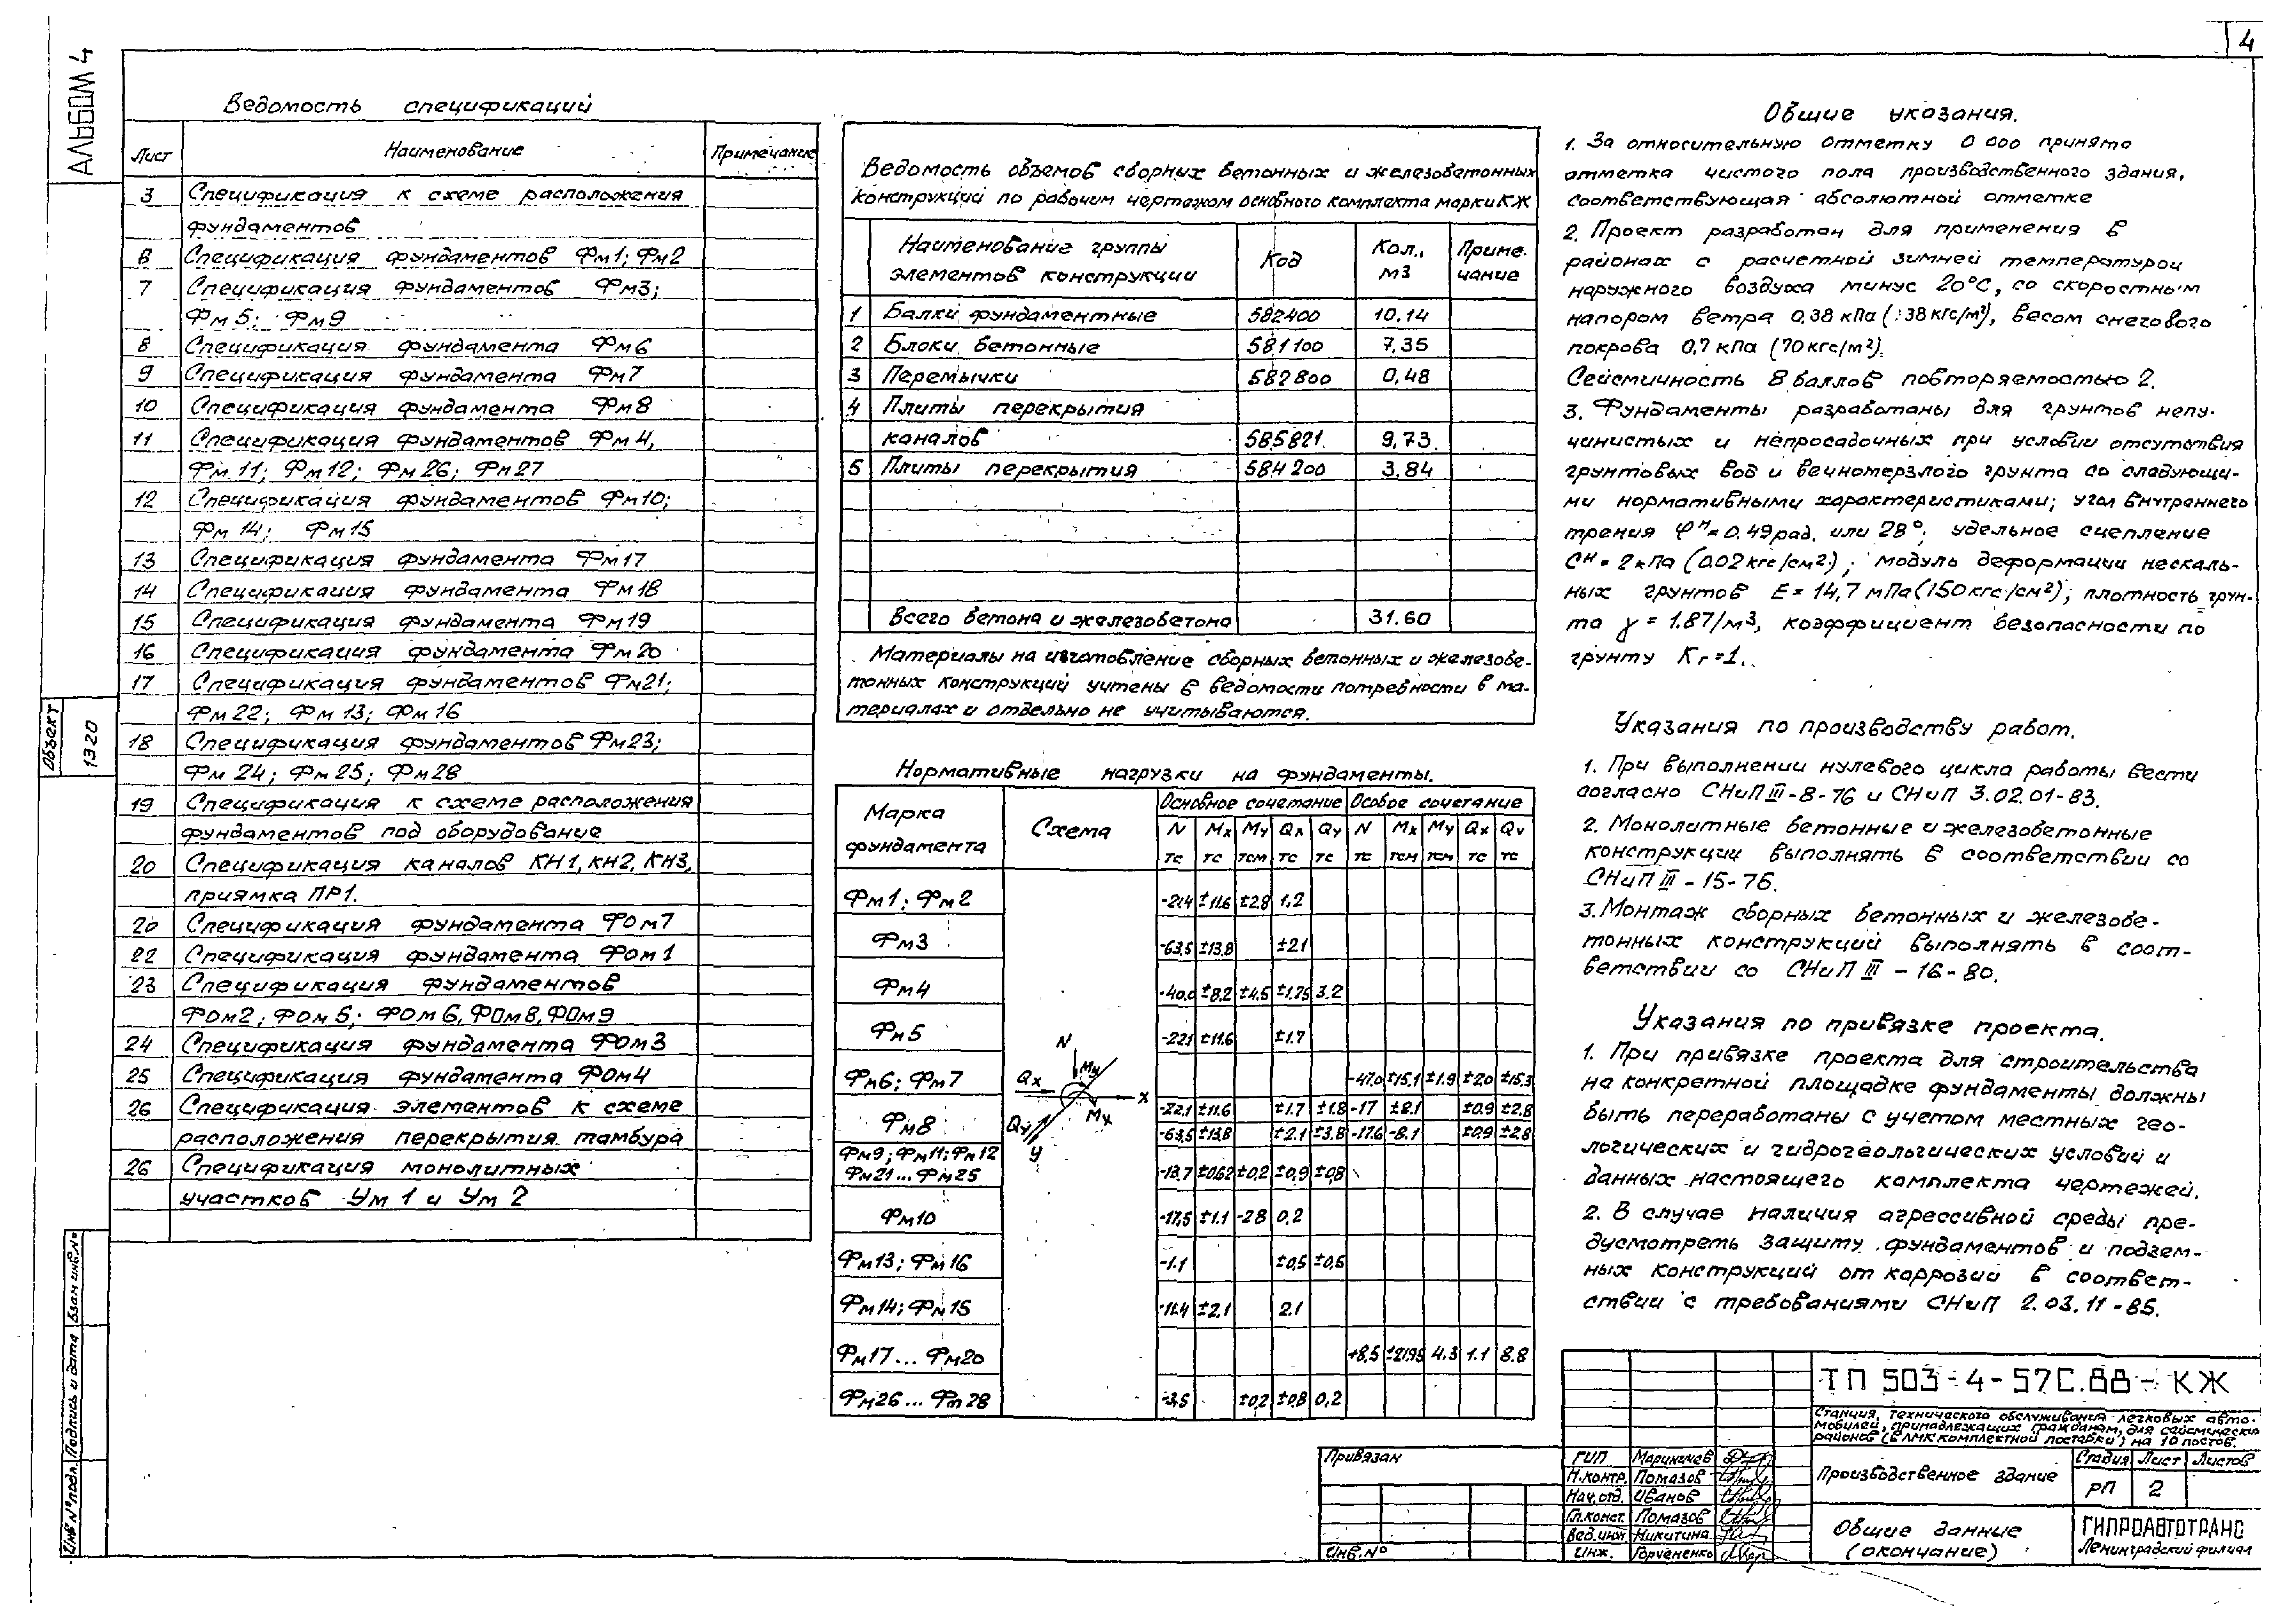 4
АЛЬБОМ 4
Объект
1320
Взам инв.№
Подпись и дата
Инв № подл.
Ведомость спецификаций
Лист Наименование Примечание
3 Спецификация к схеме расположения
фундаментов
6 Спецификация фундаментов Фм1; Фм2
7 Спецификация фундаментов Фм3;
Фм5; Фм9
8 Спецификация фундамента Фм6
9 Спецификация фундамента Фм7
10 Спецификация фундамента Фм8
11 Спецификация фундаментов Фм4,
Фм11; Фм12; Фм26; Фм27
12 Спецификация фундаментов Фм10;
Фм14; Фм15
13 Спецификация фундамента Фм17
14 Спецификация фундамента Фм18
15 Спецификация фундамента Фм19
16 Спецификация фундамента Фм20
17 Спецификация фундаментов Фм21;
Фм22; Фм13; Фм16
18 Спецификация фундаментов Фм23;
Фм24; Фм25; Фм28
19 Спецификация к схеме расположения
фундаментов под оборудование
20 Спецификация каналов КН1, КН2, КН3,
приямка ПР1.
20 Спецификация фундамента ФОм7
22 Спецификация фундамента ФОм1
23 Спецификация фундаментов
ФОм2; ФОм5; ФОм6, ФОм8, ФОм9
24 Спецификация фундамента ФОм3
25 Спецификация фундамента ФОм4
26 Спецификация элементов к схеме
расположения перекрытия тамбура
26 Спецификация монолитных
участков Ум1 и Ум2
Ведомость объемов сборных бетонных и железобетонных
конструкций по рабочим чертежам основного комплекта марки КЖ
Наименование группы элементов конструкции Код Кол., м3 Приме-чание
1 Балки фундаментные 582400 10,14
2 Блоки бетонные 581100 7,35
3 Перемычки 582800 0,48
4 Плиты перекрытия
каналов 585821 9,73
5 Плиты перекрытия 584200 3,84
Всего бетона и железобетона 31.60
Материалы на изготовление сборных бетонных и железобе-
тонных конструкций учтены в ведомости потребности в ма-
териалах и отдельно не учитываются.
Нормативные нагрузки на фундаменты.
Марка фундамента Схема Основное сочетание Особое сочетание
N Mx My Qx Qy N Mx My Qx Qy
тс тс тсм тс тс тс тсм тсм тс тс
Фм1; Фм2 -21,4 ±11.6 ±2.8 1,2
Фм3 -63,5 ±13.8 ±2.1
Фм4 -40.0 ±8.2 ±4.5 ±1.25 3.2
Фм5 -22.1 ±11.6 ±1.7
Фм6; Фм7 -47.0 ±15.1 ±1.9 ±2.0 ±15.3
Фм8 -22.1 ±11.6 ±1.7 ±1.8 -17 ±8.1 ±0.9 ±2.8
-63,5 ±13.8 ±2.1 ±3.8 -17.6 -8.1 ±0.9 ±2.8
Фм9; Фм11; Фм12
Фм21...Фм25 -13.7 ±0.62 ±0.2 ±0,9 ±0,8
Фм10 -17,5 ±1.1 -2.8 0,2
Фм13; Фм16 -1.1 ±0,5 ±0,5
Фм14; Фм15 -11.4 ±2.1 2.1
Фм17... Фм20 +8,5 ±21.95 4.3 1.1 8.8
Фм26... Фм28 -3,5 ±0,2 ±0,8 0,2
N
Mу
Qx
x
Mx
Qy
y
Общие указания.
1. За относительную отметку 0 000 принята
отметка чистого пола производственного здания,
соответствующая абсолютной отметке
2. Проект разработан для применения в
районах с расчетной зимней температурой
наружного воздуха минус 20°С, со скоростным
напором ветра 0,38 кПа (38 кгс/м²), весом снегового
покрова 0,7 кПа (70 кгс/м²).
Сейсмичность 8 баллов повторяемостью 2.
3. Фундаменты разработаны для грунтов непу-
чинистых и непросадочных при условии отсутствия
грунтовых вод и вечномерзлого грунта со следующи-
ми нормативными характеристиками; угол внутреннего
трения φн = 0.49 рад. или 28°; удельное сцепление
Сн = 2 кПа (0.02 кгс/см²); модуль деформации нескаль-
ных грунтов Е = 14,7 мПа (150 кгс/см²); плотность грун-
та γ = 1.87/м³, коэффициент безопасности по
грунту Кг=1.
Указания по производству работ.
1. При выполнении нулевого цикла работы вести
согласно СНиП III-8-76 и СНиП 3.02.01-83.
2. Монолитные бетонные и железобетонные
конструкции выполнять в соответствии со
СНиП III-15-76.
3. Монтаж сборных бетонных и железобе-
тонных конструкций выполнять в соот-
ветствии со СНиП III - 16-80.
Указания по привязке проекта.
1. При привязке проекта для строительства
на конкретной площадке фундаменты должны
быть переработаны с учетом местных гео-
логических и гидрогеологических условий и
данных настоящего комплекта чертежей.
2. В случае наличия агрессивной среды пре-
дусмотреть защиту фундаментов и подзем-
ных конструкций от коррозии в соответ-
ствии с требованиями СНиП 2.03.11-85.
ТП 503-4-57С.88 - КЖ
Станция технического обслуживания легковых авто-
мобилей, принадлежащих гражданам, для сейсмических
районов (в ЛМК комплектной поставки) на 10 постов.
Привязан
Инв.№
ГИП Мариничев
Н.контр. Помазов
Нач.отд. Иванов
Гл.конст. Помазов
Вед.инж Никитина
Инж. Горчененко
Производственное здание
Стадия Лист Листов
РП 2
Общие данные
(окончание)
ГИПРОАВТОТРАНС
Ленинградский филиал